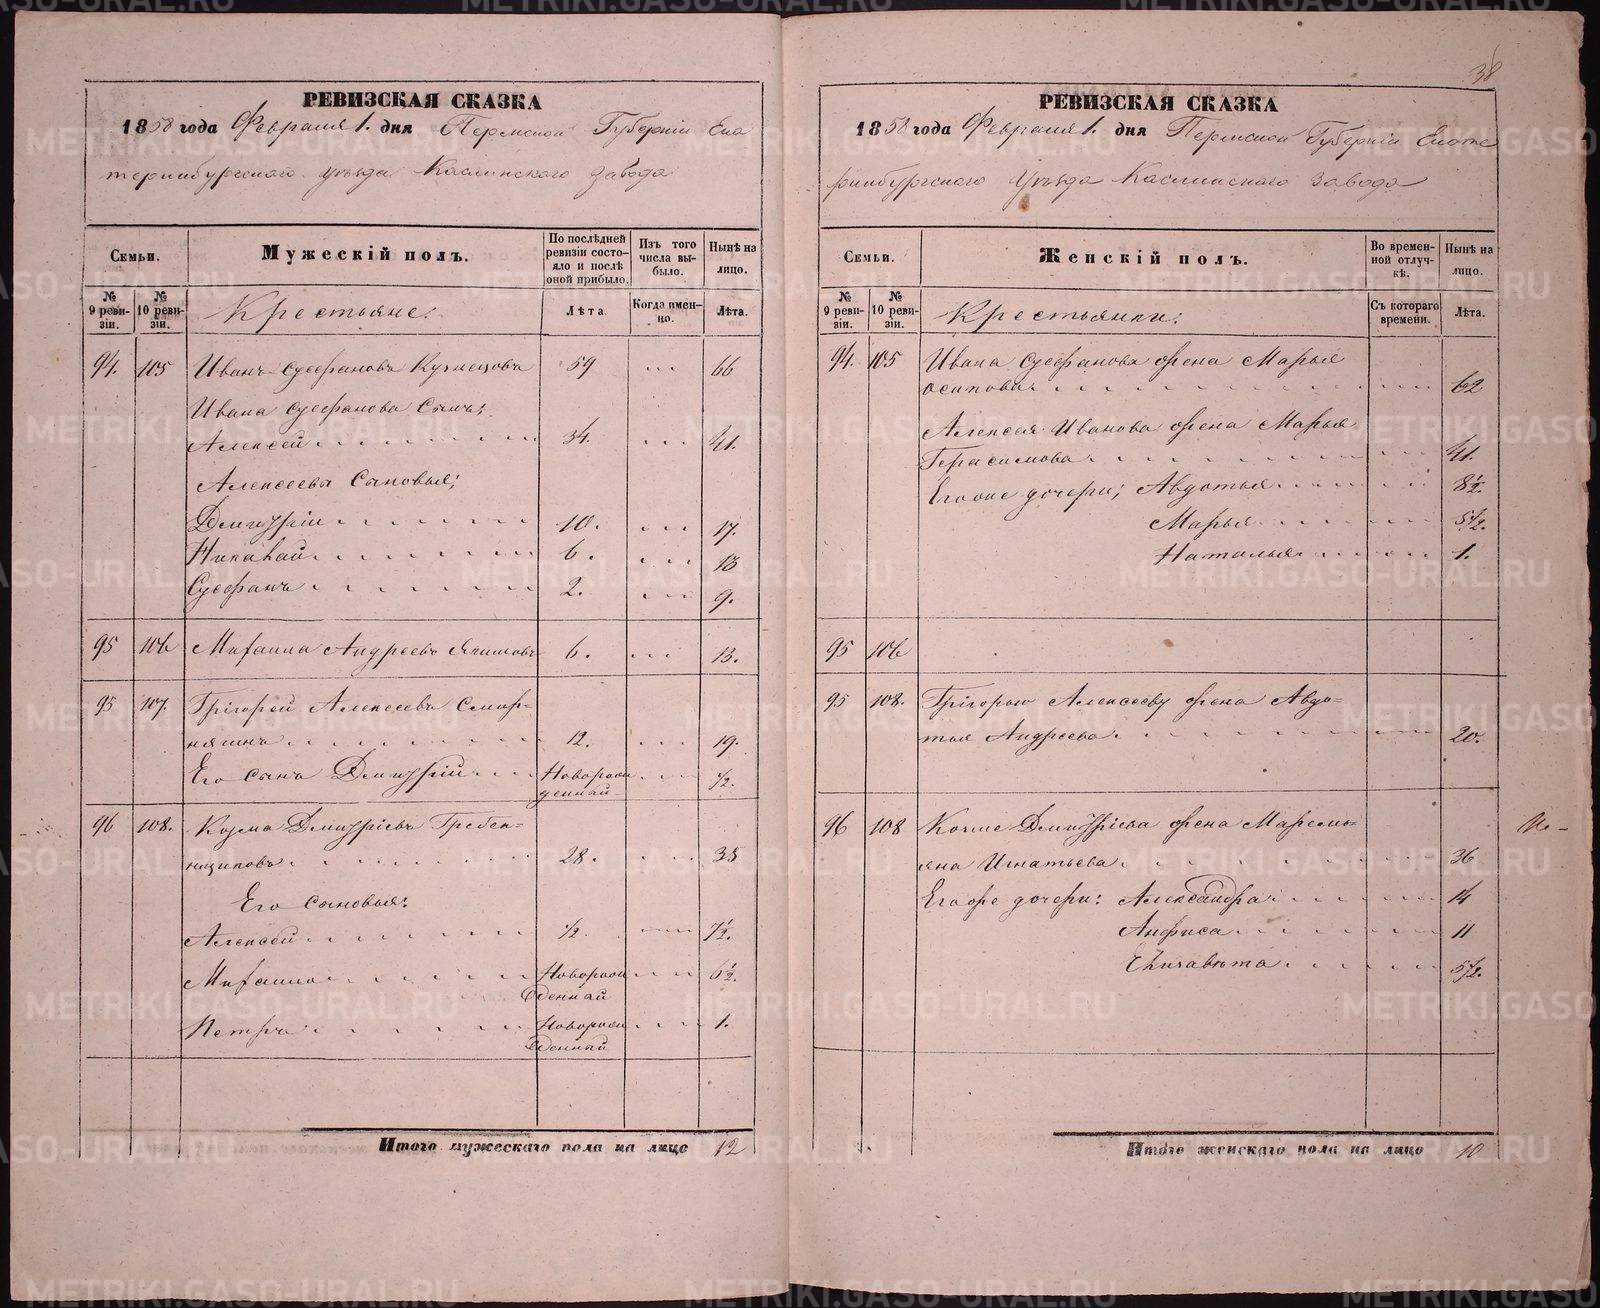 РЕВИЗСКАЯ СКАЗКА
1858 года Февраля 1. дня Пермской Губерніи Ека
теринбургского уѣзда Каслинского завода
Семьи.
Мужескій полъ.
По послѣдней ревизіи состояло и послѣ оной прибыло.
Изъ того числа выбыло.
Нынѣ на лицо.
№ 9 ревизіи.
№ 10 ревизіи.
Крестьяне:
Лѣта.
Когда именно.
Лѣта.
94. 105 Иванъ Стефановъ Кузнецовъ 59 ... 66
Ивана Стефанова Сынъ;
Алексей 34. ... 41.
Алексеевы Сыновья;
Дмитрій 10. ... 17.
Николай 6. ... 13
Стефанъ 2. ... 9.
95 106 Михаила Андреевъ 6. ... 13.
95 107. Григорей Алексеевъ Смир-
нягинъ 12. 19.
Его сынъ Дмитрій Новорож ... 1/2.
денный
96 108. Козма Дмитріевъ Гребен-
щиковъ 28. ... 35
Его Сыновья:
Алексей 1/2 ... 7 1/2.
Михаило Новорож 6 1/2.
денный
Петръ Новорож 1.
денный
Итого мужескаго пола на лицо 12
38
РЕВИЗСКАЯ СКАЗКА
1858 года Февраля 1. дня Пермской Губерніи Екате
ринбургского Уѣзда Каслинского завода
Семьи.
Женскій полъ.
Во временной отлучкѣ.
Нынѣ на лицо.
№ 9 ревизіи.
№ 10 ревизіи.
Крестьянки:
Съ котораго времени.
Лѣта.
94. 105 Ивана Стефанова жена Марья
Осипова 62
Алексея Иванова жена Марья
Герасимова 41.
Его же дочери; Авдотья 8 1/2.
Марья 5 1/2.
Наталья 1.
95 106
95 108. Григорью Алексееву жена Авдо-
тья Андреева 20.
96 108 Дмитріева жена
Игнатьева 36
Его же дочери: Александра 14
Анфиса 11
Елизавета 5 1/2.
Итого женскаго пола на лицо 10
METRIKI.GASO-URAL.RU